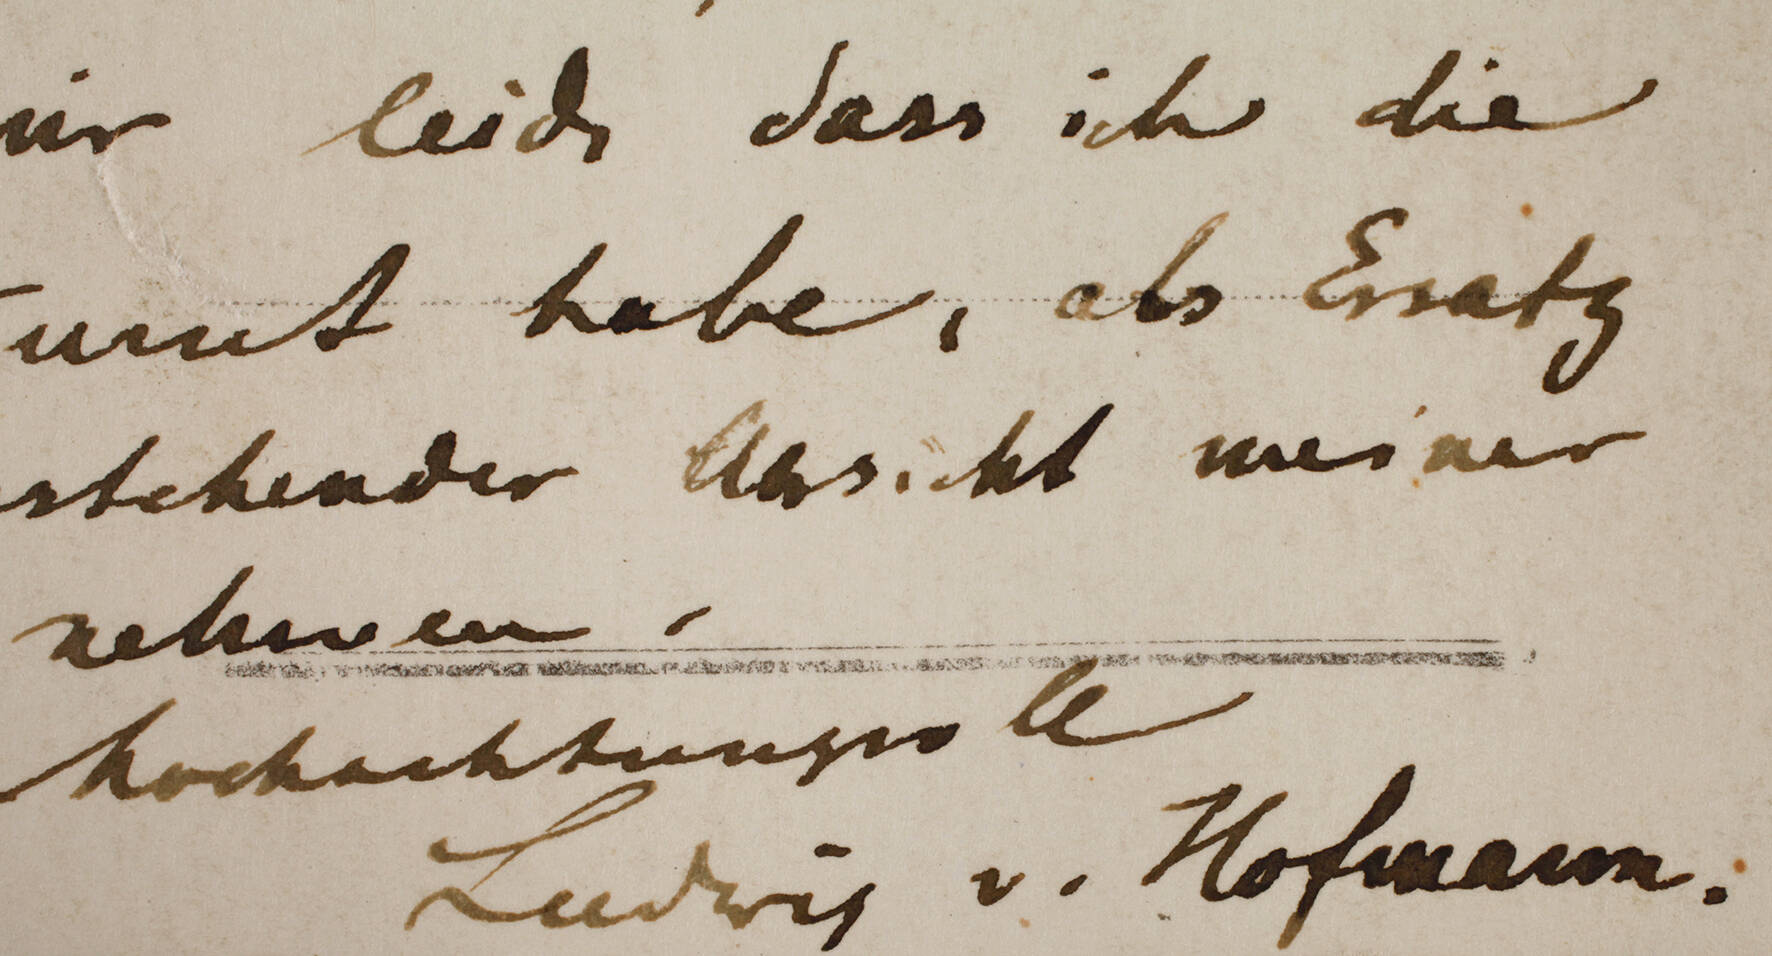 mir leid, dass ich die
habe, als Ersatz
stehender Ansicht meiner
nehmen.
hochachtungsvoll
Ludwig v. Hofmann.